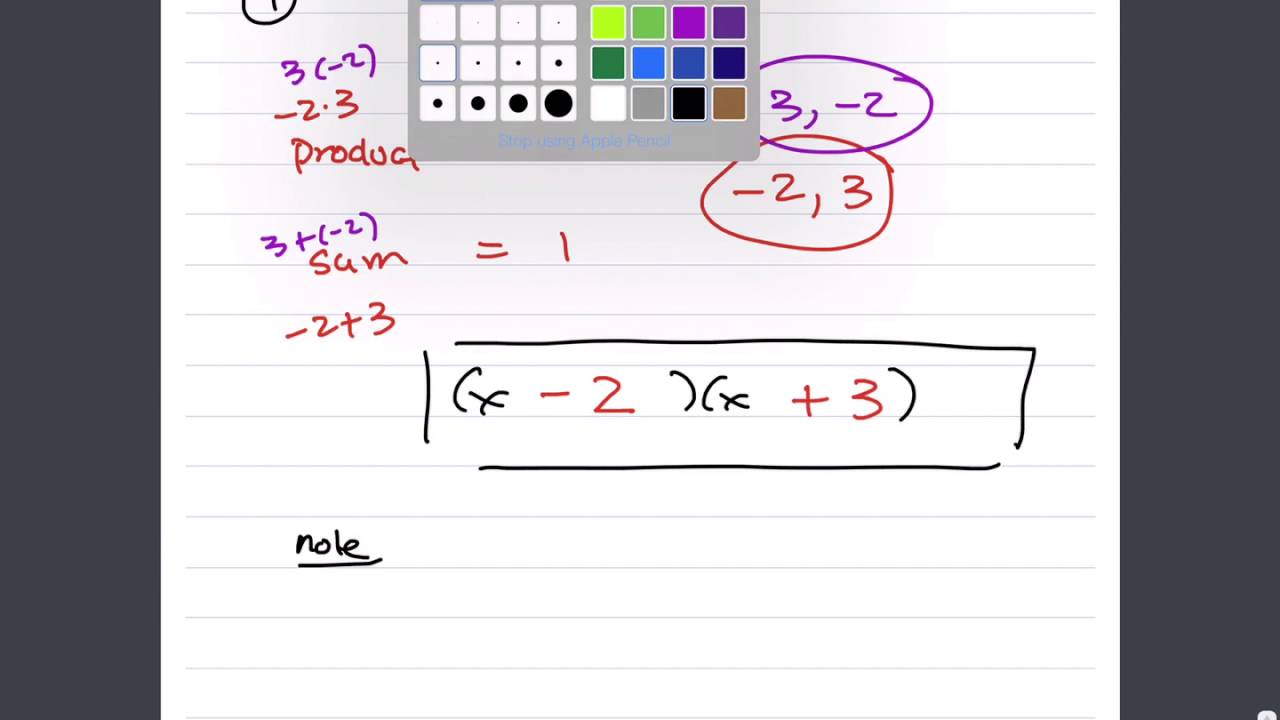 1
3(-2)
-2·3
Stop using Apple Pencil
3, -2
-2, 3
3+(-2)
Sum = 1
-2+3
(x - 2 )(x + 3)
note